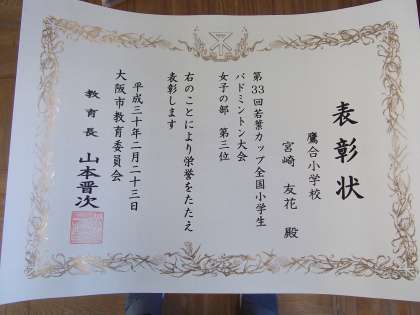 表彰状
鷹合小学校
宮崎 友花 殿
第33回若葉カップ全国小学生
バドミントン大会
女子の部 第三位
右のことにより栄誉をたたえ
表彰します
平成三十年二月二十三日
大阪市教育委員会
教育長 山本晋次